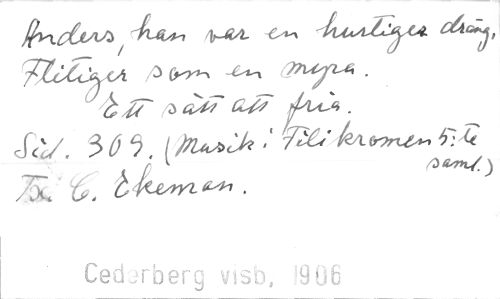 Anders, han var en hurtiger dräng,
Flitiger som en myra.
Ett sätt att fria.
Sid. 309. (Musik i Filikromen 5:te
saml.)
C. Ekeman.
Cederberg visb, 1906